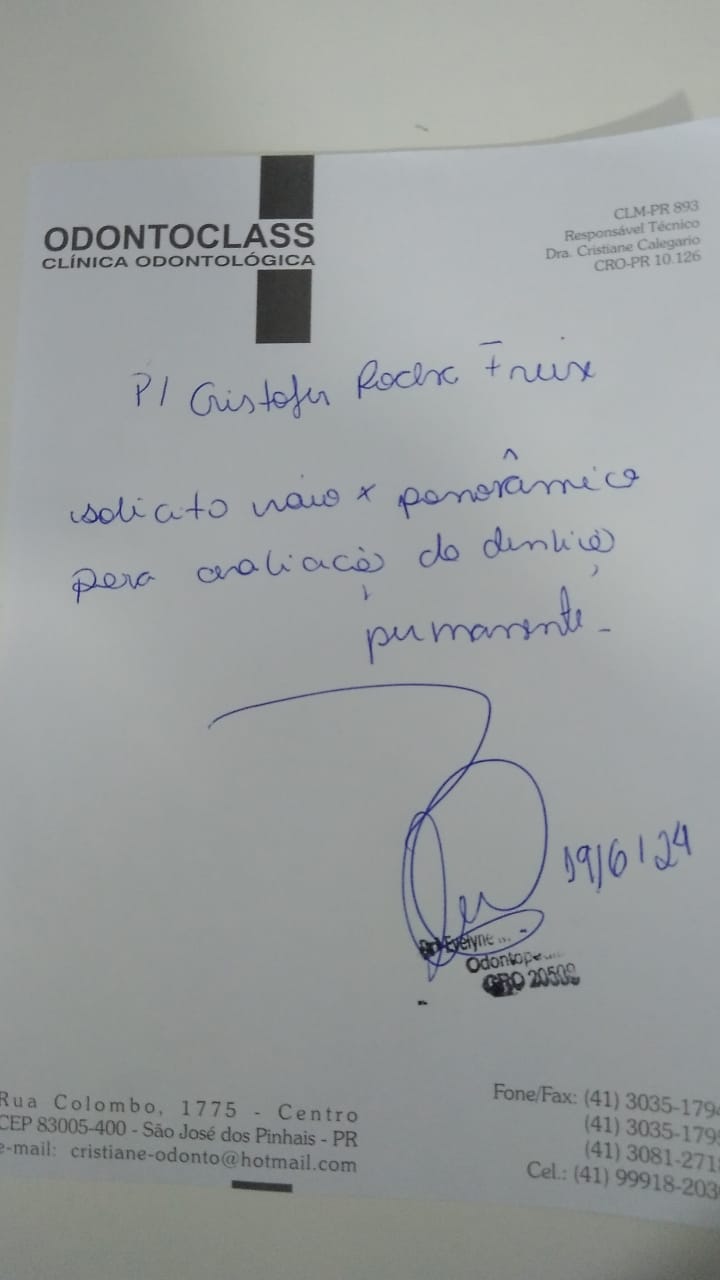 ODONTOCLASS
CLÍNICA ODONTOLÓGICA
CLM-PR 893
Responsável Técnico
Dra. Cristiane Calegario
CRO-PR 10.126
P/ Cristofer Rocha Freire
solicito raio x panorâmico
para avaliação da dentição
permanente.
19/6/24
Evelyne
CRO 20509
Rua Colombo, 1775 - Centro
CEP 83005-400 - São José dos Pinhais - PR
e-mail: cristiane-odonto@hotmail.com
Fone/Fax: (41) 3035-179
(41) 3035-179
(41) 3081-271
Cel.: (41) 99918-203